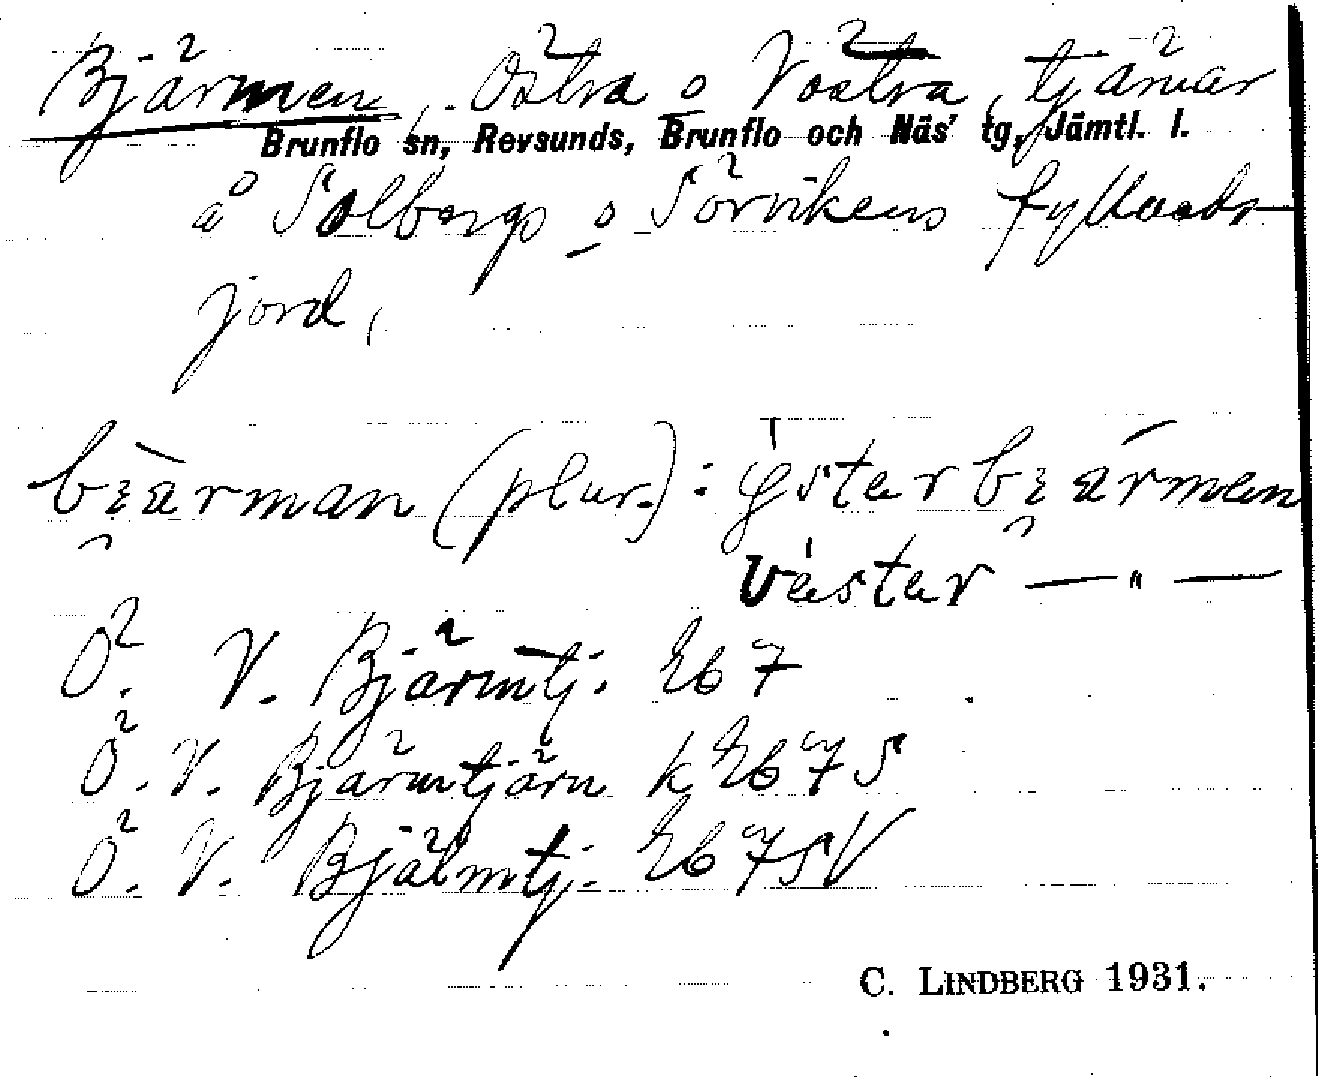 Bjärmen, Östra o Västra, tjärnar
Brunflo sn, Revsunds, Brunflo och Näs' tg, Jämtl. l.
å Solbergs o Sörvikens fyllnads-
jord,
(plur.):
— " —
Ö. V. Bjärmtj. Eb 7
Ö. V. Bjärmtjärn k Eb 7 S
Ö. V. Bjälmtj. Eb 7 SV
C. LINDBERG 1931.